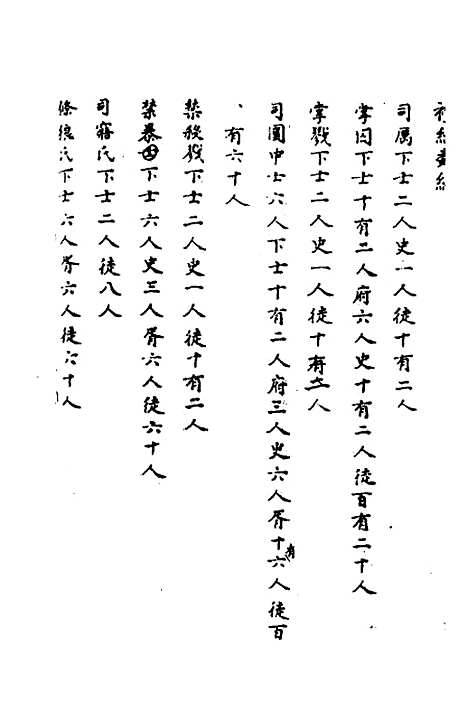 司厲下士二人史一人徒十有二人
掌囚下士十有二人府六人史十有二人徒百有二十人
掌戮下士二人史一人徒十有二人
司圜中士六人下士十有二人府三人史六人胥十有六人徒百
有六十人
禁殺戮下士二人史一人徒十有二人
禁暴氏下士六人史三人胥六人徒六十人
司寤氏下士二人徒八人
條狼氏下士六人胥六人徒六十人